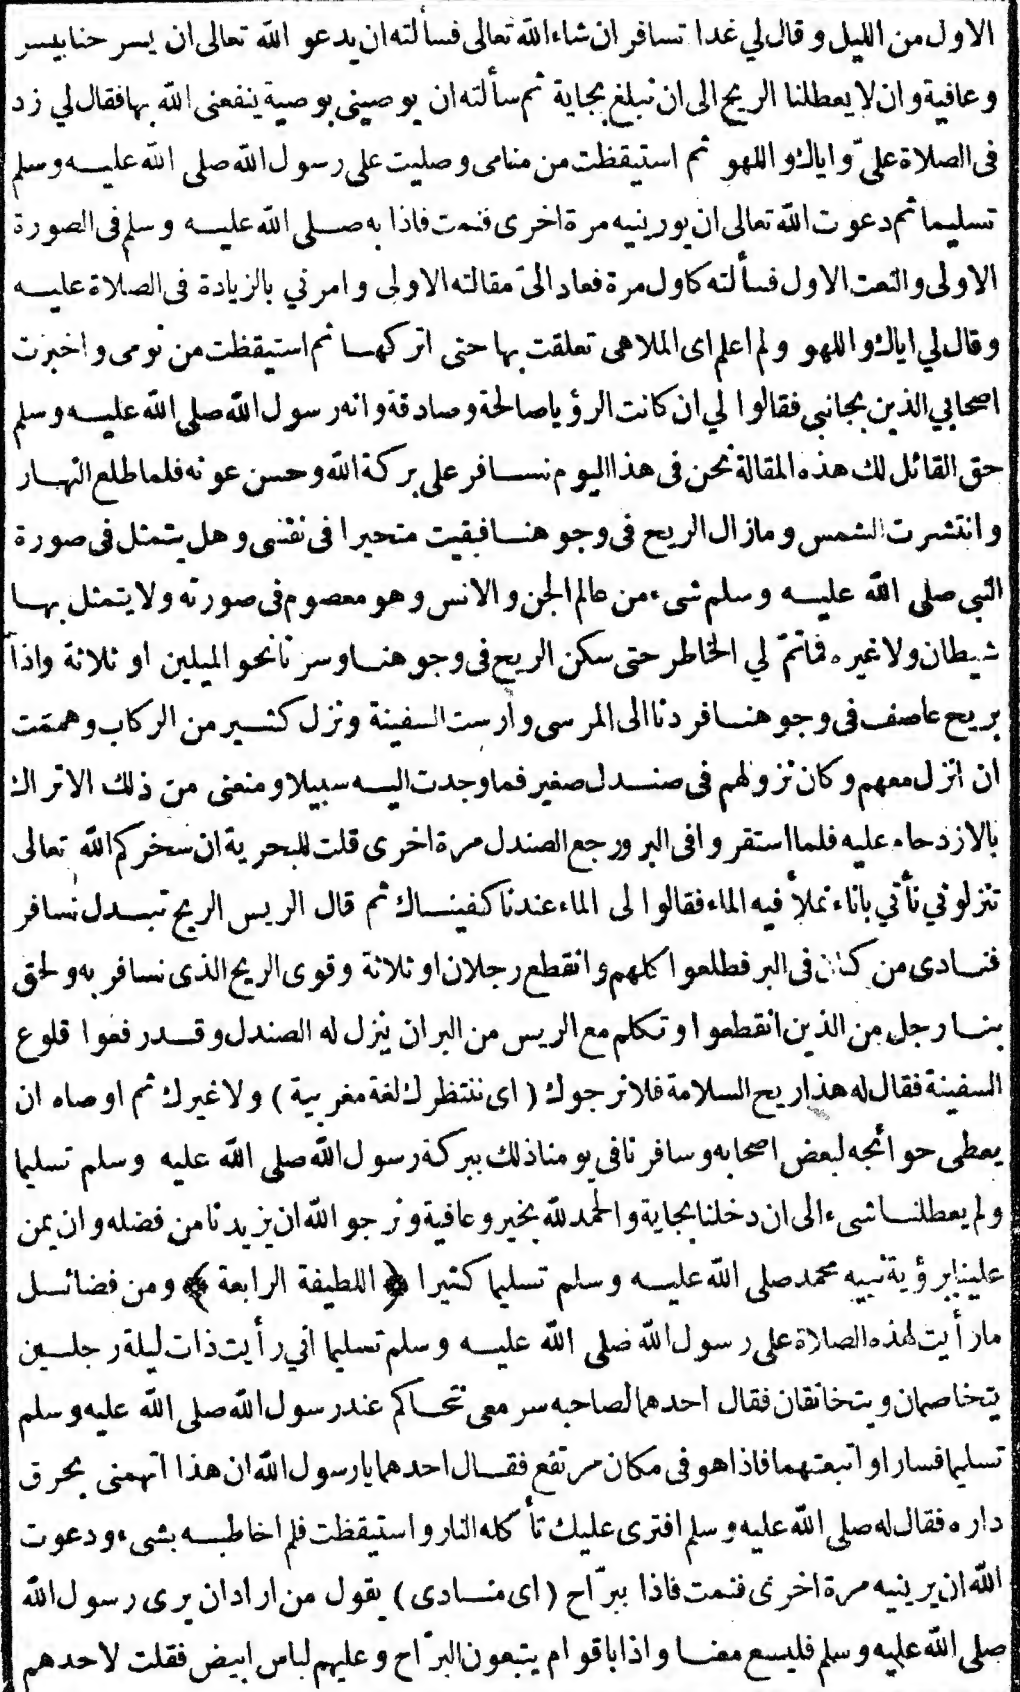 الاول من الليل وقال لي غدا تسافر ان شاء الله تعالى فسألته ان يدعو الله تعالى ان يسرحنا بيسر
وعافية وان لا يعطلنا الريح الى ان نبلغ بجاية ثم سألته ان يوصينى بوصية ينفعنى الله بها فقال لي زد
فى الصلاة علىّ واياك واللهو ثم استيقظت من منامى وصليت على رسول الله صلى الله عليه وسلم
تسليما ثم دعوت الله تعالى ان يورينيه مرة اخرى فنمت فاذا به صلى الله عليه وسلم فى الصورة
الاولى والنعت الاول فسألته كاول مرة فعاد الىّ مقالته الاولى وامرني بالزيادة فى الصلاة عليه
وقال لي اياك واللهو ولم اعلم اى الملاهى تعلقت بها حتى اتركها ثم استيقظت من نومى واخبرت
اصحابي الذين بجانبى فقالوا لي ان كانت الرؤيا صالحة وصادقة وانه رسول الله صلى الله عليه وسلم
حق القائل لك هذه المقالة نحن فى هذا اليوم نسافر على بركة الله وحسن عونه فلما طلع النهار
وانتشرت الشمس ومازال الريح فى وجوهنا فبقيت متحيرا فى نفسى وهل يتمثل فى صورة
النبى صلى الله عليه وسلم شىء من عالم الجن والانس وهو معصوم فى صورته ولا يتمثل بها
شيطان ولا غيره فماتمّ لي الخاطر حتى سكن الريح فى وجوهنا وسرنا نحو الميلين او ثلاثة واذا
بريح عاصف فى وجوهنا فردنا الى المرسى وأرست السفينة ونزل كثير من الركاب وهممت
ان انزل معهم وكان نزولهم فى صندل صغير فما وجدت اليه سبيلا ومنعنى من ذلك الاتراك
بالازدحام عليه فلما استقروا فى البر ورجع الصندل مرة اخرى قلت للبحرية ان سخركم الله تعالى
تنزلوني نأتي باناء نملأ فيه الماء فقالوا لى الماء عندنا كفيناك ثم قال الريس الريح تبدل نسافر
فنادى من كان فى البر فطلعوا كلهم وانقطع رجلان او ثلاثة وقوى الريح الذى نسافر به ولحق
بنا رجل من الذين انقطعوا وتكلم مع الريس من البر ان ينزل له الصندل وقد رفعوا قلوع
السفينة فقال له هذا ريح السلامة فلا نرجوك ( اى ننتظرك لغة مغربية ) ولا غيرك ثم اوصاه ان
يعطى حوائجه لبعض اصحابه وسافرنا فى يومنا ذلك ببركة رسول الله صلى الله عليه وسلم تسليما
ولم يعطلنا شىء الى ان دخلنا بجاية والحمد لله بخير وعافية ونرجو الله ان يزيدنا من فضله وان يمن
علينا برؤية نبيه محمد صلى الله عليه وسلم تسليما كثيرا ﴿ اللطيفة الرابعة ﴾ ومن فضائل
مارأيت لهذه الصلاة على رسول الله صلى الله عليه وسلم تسليما اني رأيت ذات ليلة رجلين
يتخاصمان ويتخانقان فقال احدهما لصاحبه سر معى نتحاكم عند رسول الله صلى الله عليه وسلم
تسليما فسارا واتبعتهما فاذا هو فى مكان مرتفع فقال احدهما يارسول الله ان هذا اتهمنى بحرق
داره فقال له صلى الله عليه وسلم افترى عليك تأكله النار واستيقظت فلم اخاطبه بشىء ودعوت
الله ان يرينيه مرة اخرى فنمت فاذا ببرّاح ( اى منادى ) يقول من اراد ان يرى رسول الله
صلى الله عليه وسلم فليسع معنا واذا باقوام يتبعون البرّاح وعليهم لباس ابيض فقلت لاحدهم